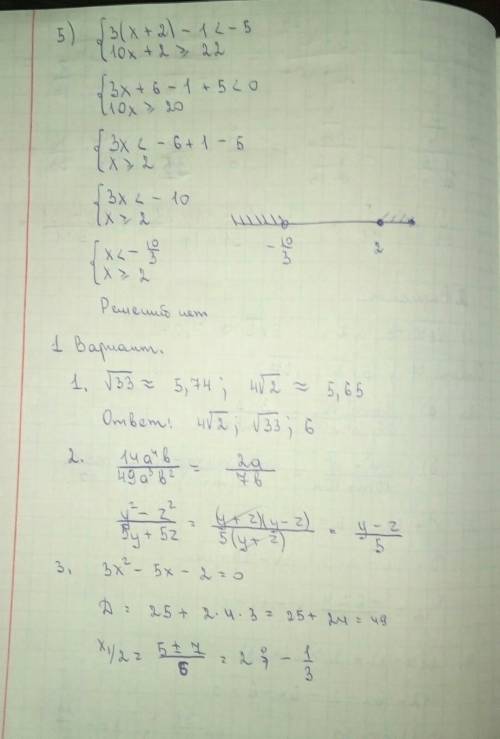 5) { 3(x+2) - 1 < - 5
10x + 2 ≥ 22
{ 3x + 6 - 1 + 5 < 0
10x ≥ 20
{ 3x < - 6 + 1 - 5
x ≥ 2
{ 3x < - 10
x ≥ 2
{ x < - 10/3
x ≥ 2
- 10/3 2
Решений нет
1 Вариант.
1. √33 ≈ 5,74 ; 4√2 ≈ 5,65
Ответ: 4√2 ; √33 ; 6
2. 14a⁴b / 49a³b² = 2a / 7b
y² - z² / 5y + 5z = (y + z)(y - z) / 5(y + z) = y - z / 5
3. 3x² - 5x - 2 = 0
Д = 25 + 2·4·3 = 25 + 24 = 49
x 1/2 = 5 ± 7 / 6 = 2 ; - 1/3